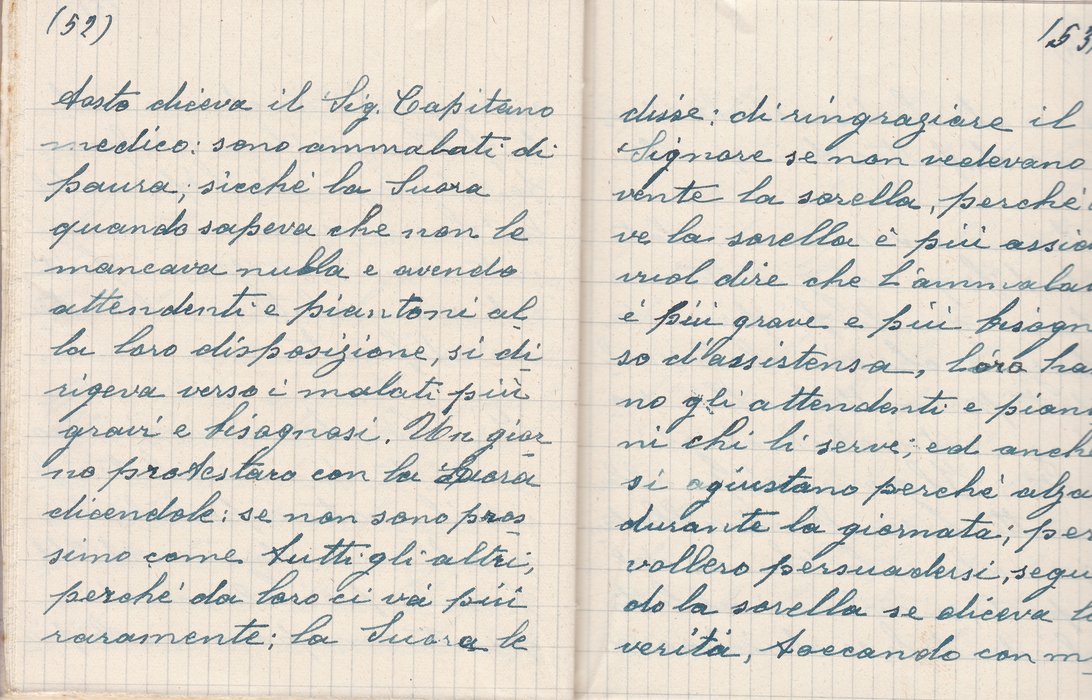 (52)
tosto diceva il Sig. Capitano
medico: sono ammalati di
paura; sicché la Suora
quando sapeva che non le
mancava nulla e avendo
attendenti e piantoni al-
la loro disposizione, si di-
rigeva verso i malati più
gravi e bisognosi. Un gior-
no protestaro con la Suora
dicendole: se non sono pros-
simo come tutti gli altri,
perché da loro ci và più
raramente; la Suora le
(53
disse: di ringraziare il
Signore se non vedevano
vente la sorella, perché
ve la sorella è più assi
vuol dire che l'ammala
è più grave e più bisogn
so d'assistensa, loro ha
no gli attendenti e pian
ni chi li serve; ed anche
si agiustano perché alza
durante la giornata; per
vollero persuadersi, segu
do la sorella se diceva
verità, toccando con m